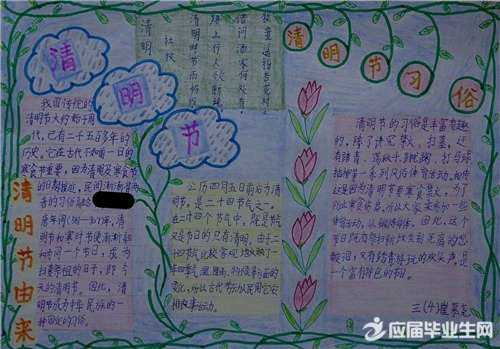 清明
杜牧
清明时节雨纷纷
路上行人欲断魂
借问酒家何处有
清明节
清明节习俗
清明节由来
我国传统的
清明节大约始于周
代,已有二千五百多年的
历史。它在古代不如前一日的
寒食节重要,因为清明及寒食节
的日期接近,民间
的习俗
清
明节和寒食节便渐渐融
合为同一个节日,成为
扫墓祭祖的日子,即今
天的清明节。因此,清
明节成为中华民族的一
种固定的习俗。
公历四月五日前后为清明
节,是二十四节气之一。
在二十四个节气中,既是节气
又是节日的只有清明。由于二
十四节气比较客观地反映了一
年四季气温、降雨、物候等方面的
变化,所以古代劳动人民用它安
排农事活动。
清明节的习俗是丰富有趣
的,除了讲究禁火、扫墓,还
有踏青、荡秋千、蹴鞠、打马球
插柳等一系列风俗体育活动。相传
这是因为清明节要寒食禁火,为了
防止寒食冷餐,所以大家来参加一些
体育活动,以锻炼身体。因此,这个
节日既有祭扫新坟生离死别的悲
酸泪,又有踏青游玩的欢笑声,是
一个富有特色的节日。
三(4)
应届毕业生网